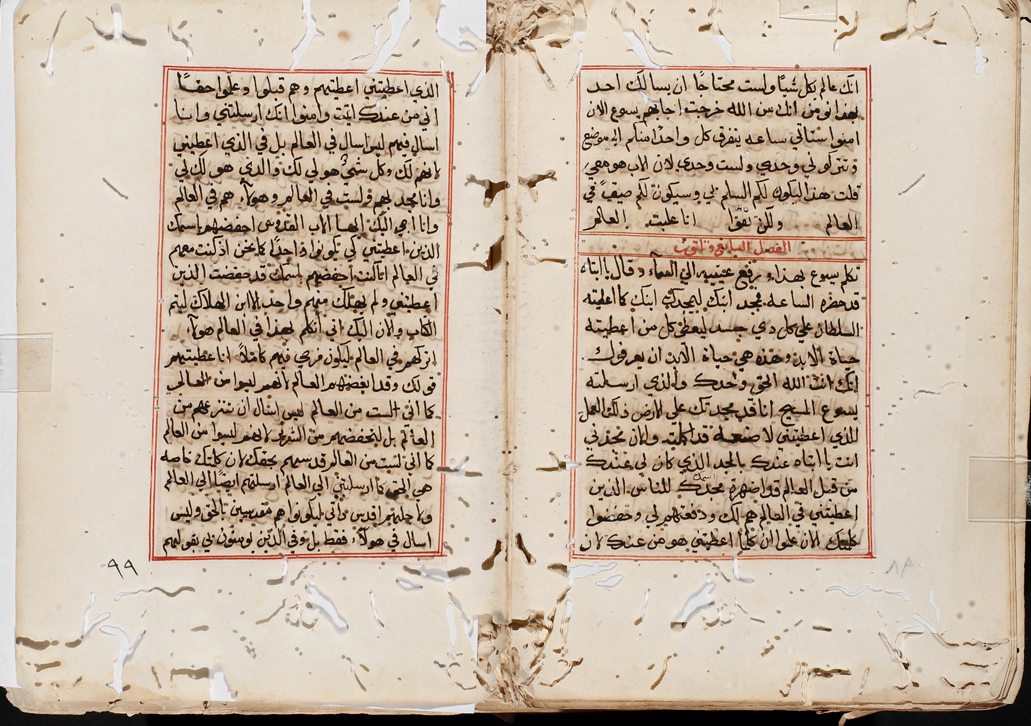 انك عالم بكل شيا ولست محتاجا ان يسالك احد
بهذا نومن انك من الله خرجت اجابهم يسوع الان
امنوا ستاتي ساعه يتفرق كل واحد منكم الى موضع
وتتركوني وحدي ولست وحدي لان الاب هو معي
قلت هذا ليكون لكم السلم بي وسيكون لكم ضيق في
العالم ولكن ثقوا انا غلبت العالم
الفصل السابع وثلثون
تكلم يسوع بهذا ورفع عينيه الى السماء وقال يا ابتاه
قد حضرة الساعه مجد ابنك ليمجدك ابنك كما اعطيته
السلطان على كل دي جسد ليعطي كل من اعطيته
حياة الابد وهذه هي حياة الابد ان يعرفوك
انك انت الله الحق وحدك والذي ارسلته
يسوع المسيح انا قد مجدتك على الارض ذلك العمل
الذي اعطيتني لا صنعه قد اكملته والان مجدني
انت يا ابتاه عندك بالمجد الذي كان لي عندك
من قبل العالم قد اضهرة اسمك للناس الدين
اعطيتني في العالم هم لك ودفعتهم لي وحفضوا
كلمتك الان علموا ان كلما اعطيتني هو من عندك لان
٨٩
الذي اعطيتني اعطيتهم وهم قبلوا وعلموا حقا
اني من عندك اتيت وامنوا انك ارسلتني وانا
اسال فيهم ليس اسال في العالم بل في الذي اعطيتني
لانهم لك وكل شي هو لي لك والذي هو لك لي
وانا مجد بهم ولست في العالم وهولاء هم في العالم
وانا اجي اليك ايها الاب القدوس احفضهم باسمك
الدين اعطيتني كي يكونوا واحدا كما نحن اذ كنت معهم
في العالم انا كنت احفضهم باسمك قد حفضت الذين
اعطيتني ولم يهلك منهم واحد الا ابن الهلاك ليتم
الكتاب والان اليك اتي اتكلم بهذا في العالم هولا
ازكهم في العالم ليكون فرحي فيهم كاملا انا عطيتهم
قولك وقد ابغضهم العالم لانهم ليسوا من العالم
كما اني لست من العالم ليس اسال ان تنزعهم من
العالم بل لتحفضهم من الشرير لانهم ليسوا من العالم
كما اني لست من العالم قدسهم بحقك لان كلمتك خاصه
هي الحق كما ارسلتني الى العالم ارسلتهم ايضا الى العالم
ولاجلهم اقدس ذاتي ليكونوا هم مقدسين بالحق وليس
اسال في هولاء فقط بل وفي الذين يومنون بي بقولهم
٩٩